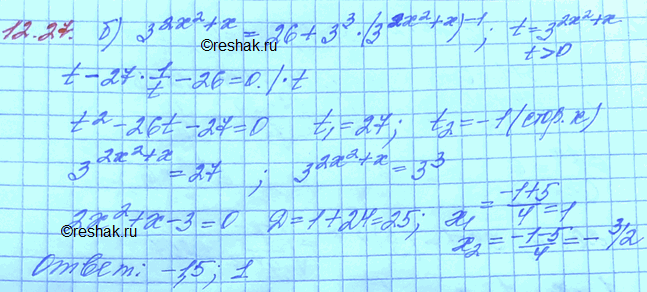 12.27. б) 3^{2x²+x} = 26 + 3³ · (3^{2x²+x})^{-1}; t = 3^{2x²+x}
©reshak.ru t>0
t - 27 · 1/t - 26 = 0 | · t
t² - 26t - 27 = 0 t₁ = 27; t₂ = -1 (стор. к)
3^{2x²+x} = 27 ; 3^{2x²+x} = 3³
2x² + x - 3 = 0 D = 1 + 24 = 25; x₁ = (-1+5)/4 = 1
x₂ = (-1-5)/4 = - 3/2
Ответ: -1,5; 1
©reshak.ru